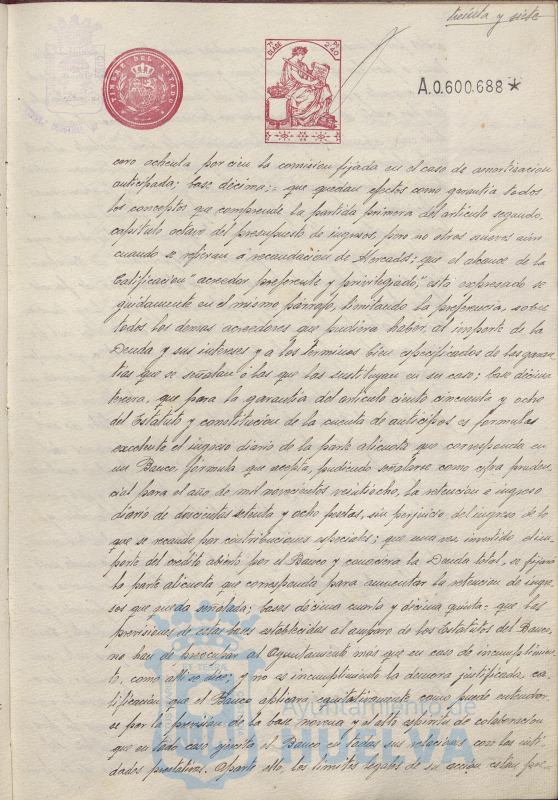 treinta y siete
TIMBRE DEL ESTADO
CLASE
A.0.600.688*
cero ochenta por cien la comisión fijada en el caso de amortización
anticipada; base décima:- que quedan afectos como garantía todos
los conceptos que comprende la partida primera del artículo segundo,
capítulo octavo del presupuesto de ingresos, pero no otros nuevos aún
cuando se refieran a recaudación de Mercados; que el alcance de la
Calificación "acreedor preferente y privilegiado," está expresado se-
guidamente en el mismo párrafo, limitando la preferencia, sobre
todos los demás acreedores que pudiera haber, al importe de la
Deuda y sus intereses y a los términos bien especificados de las garan-
tías que se señalan o las que las sustituyan en su caso; base décima
tercera, que para la garantía del artículo ciento cincuenta y ocho
del Estatuto y constitución de la cuenta de anticipos es fórmula
excelente el ingreso diario de la parte alícuota que corresponda en
un Banco, fórmula que acepta, pudiendo señalarse como cifra pruden-
cial para el año de mil novecientos veintiocho, la retención e ingreso
diario de doscientas setenta y ocho pesetas, sin perjuicio del ingreso de lo
que se recaude por contribuciones especiales; que una vez invertido el im-
porte del crédito abierto por el Banco y conociera la Deuda total, se fijará
la parte alícuota que corresponda para aumentar la retención de ingre-
sos que queda señalada; bases décima cuarta y décima quinta: que las
previsiones de estas bases establecidas al amparo de los Estatutos del Banco,
no han de preocupar al Ayuntamiento más que en caso de incumplimien-
to, como allí se dice; y no es incumplimiento la demora justificada, ca-
lificación que el Banco aplicará equitativamente como puede entender-
se por la previsión de la base novena y el alto espíritu de colaboración
que en todo caso ejercita el Banco en todas sus relaciones con las enti-
dades prestatarias. Aparte ello, los límites legales de su acción están pre-
Ayuntamiento de
HUELVA